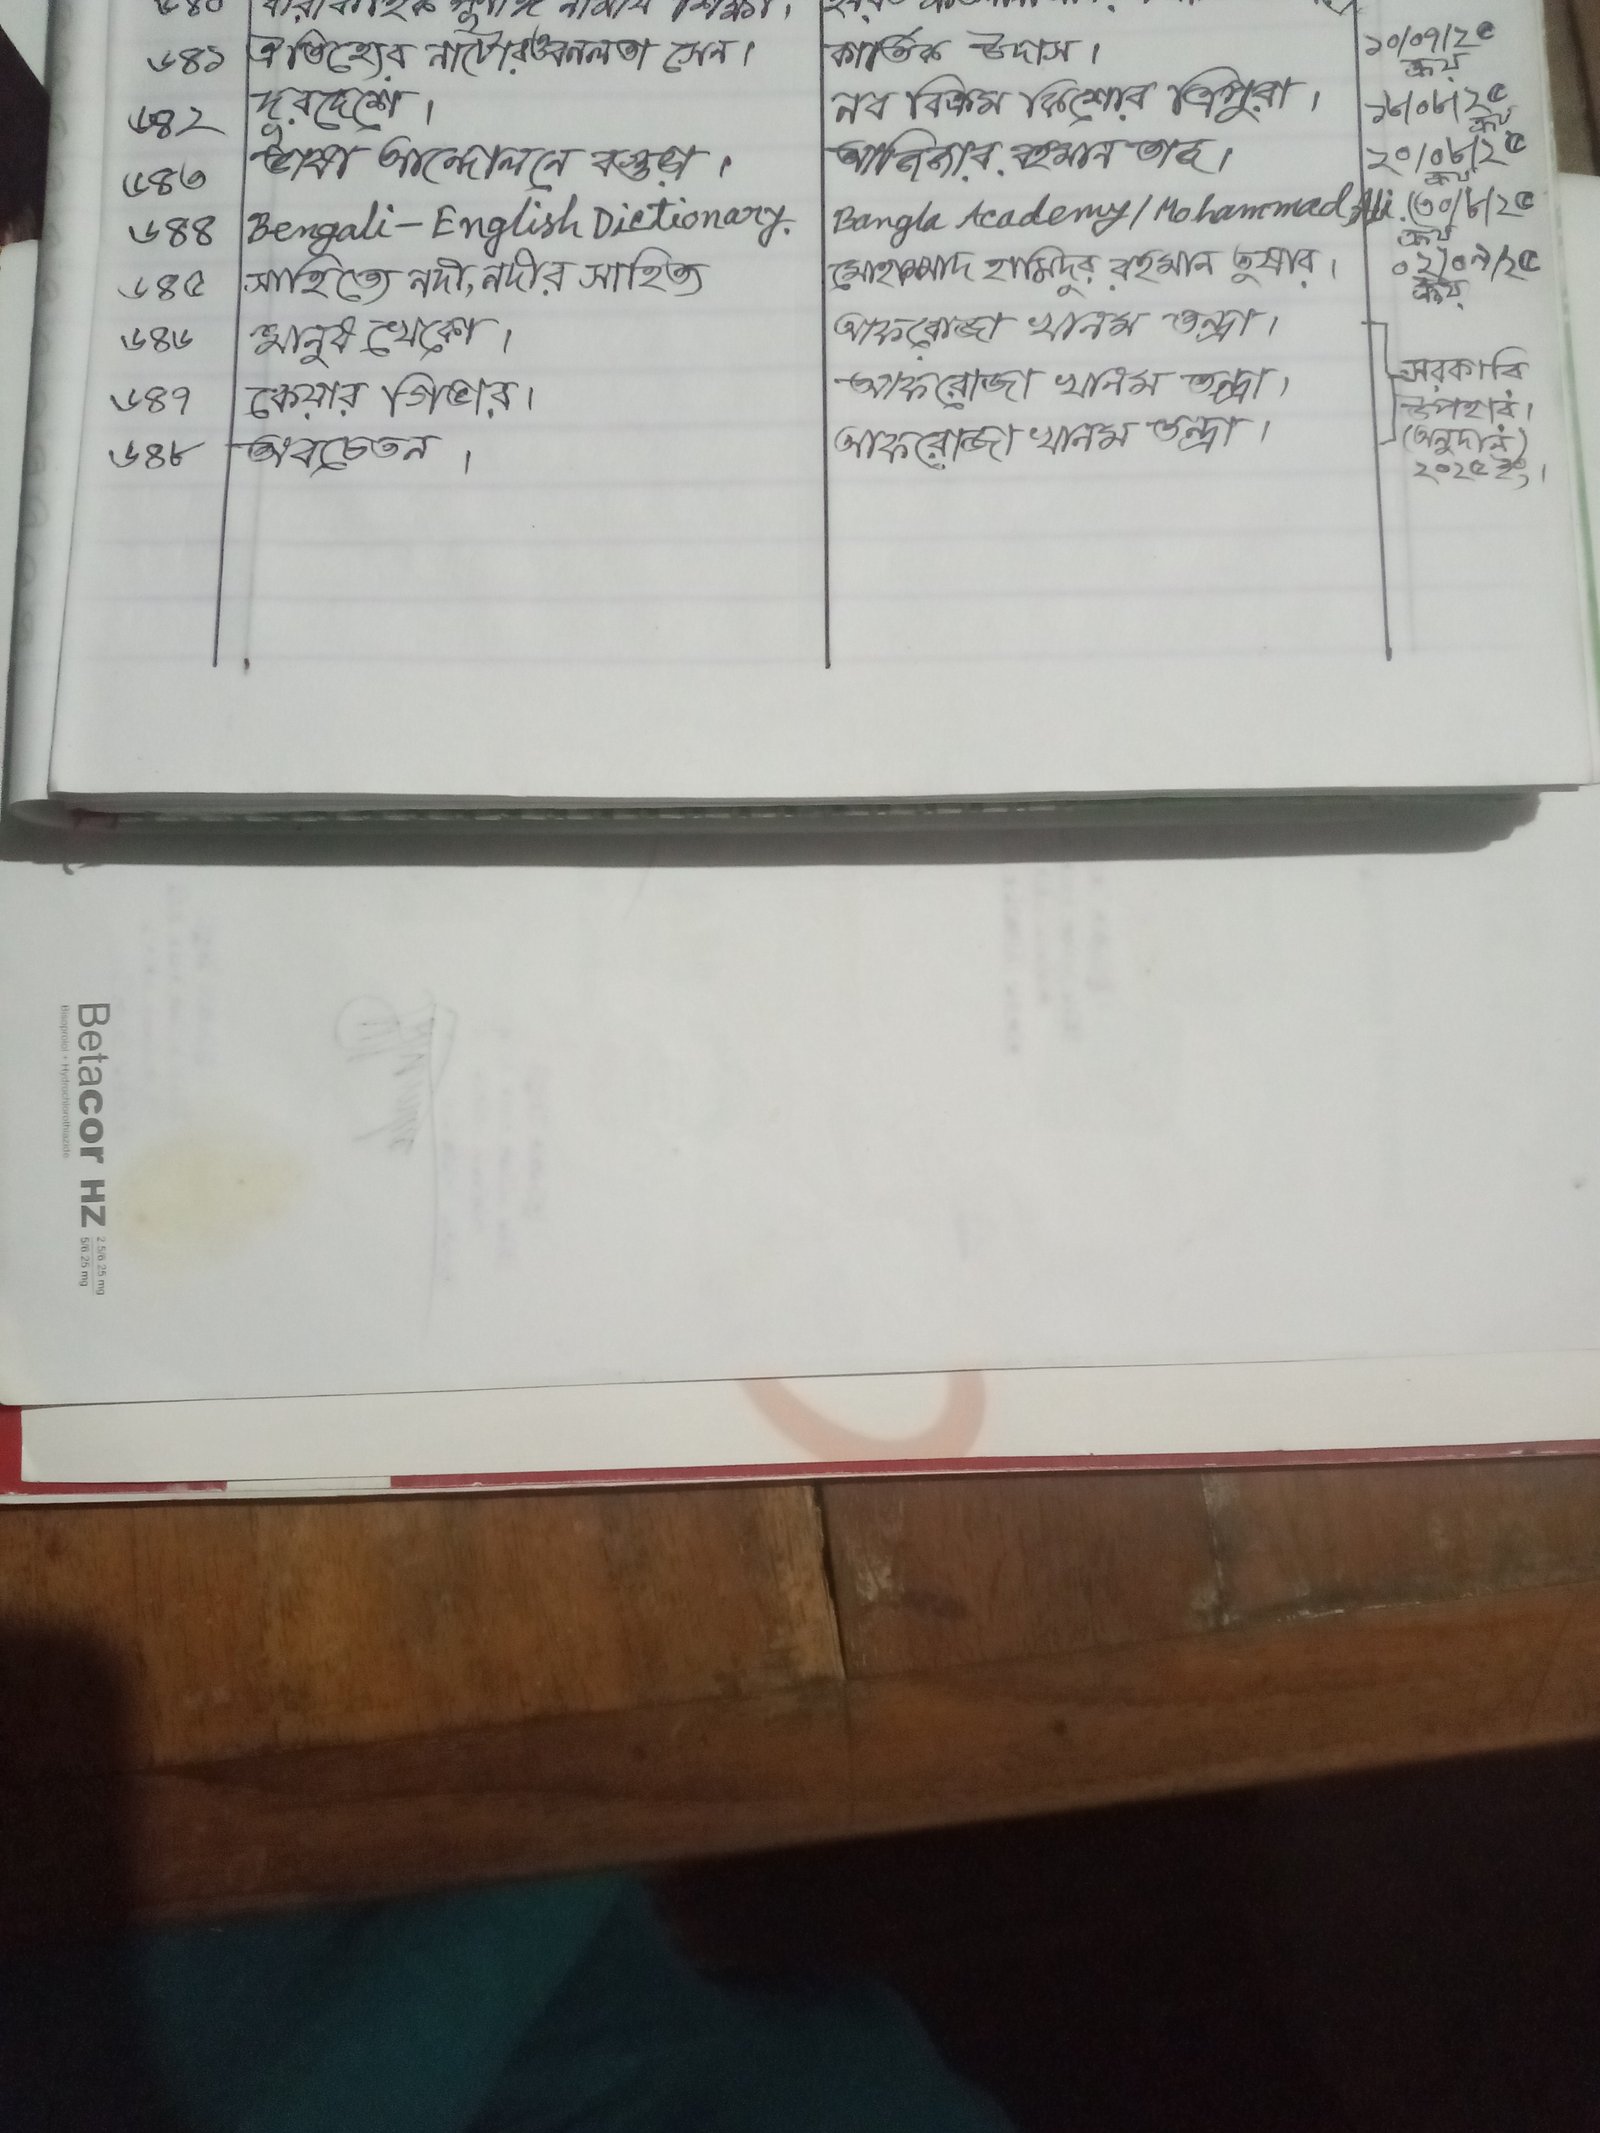 ৬৪০ ধারাবাহিক পূর্ণাঙ্গ নামায শিক্ষা।
৬৪১ ঐতিহ্যের নাটোর ও বনলতা সেন। কার্তিক উদাস। ১০/০৭/২৫
ক্রয়
৬৪২ দূরদেশে। নব বিক্রম কিশোর ত্রিপুরা। ১৮/০৮/২৫
ক্রয়
৬৪৩ ভাষা আন্দোলনে বগুড়া। রহমান তাজ। ২০/০৮/২৫
ক্রয়
৬৪৪ Bengali-English Dictionary. Bangla Academy/Mohammad Ali. ৩০/৮/২৫
ক্রয়
৬৪৫ সাহিত্যে নদী, নদীর সাহিত্য মোহাম্মাদ হামিদুর রহমান তুষার। ০২/০৯/২৫
ক্রয়
৬৪৬ মানুষ খেকো। আফরোজা খানম তন্দ্রা।
৬৪৭ কেয়ার গিভার। আফরোজা খানম তন্দ্রা।
৬৪৮ অবচেতন। আফরোজা খানম তন্দ্রা।
সরকারি
উপহার।
(অনুদান)
২০২৫ ইং।
Betacor HZ 2.5/6.25 mg
5/6.25 mg
Bisoprolol + Hydrochlorothiazide